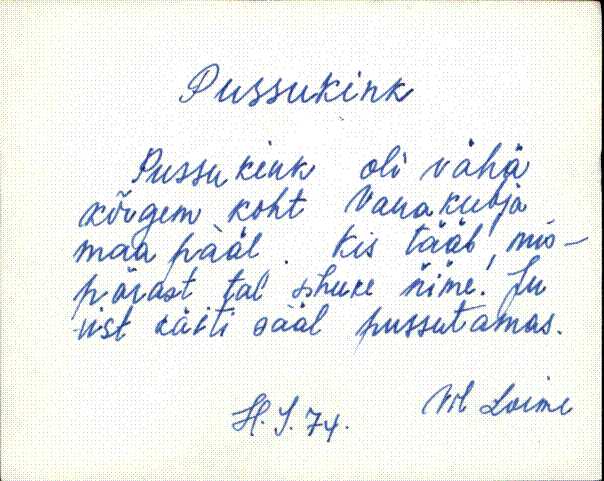 Pussukink
Pussukink oli vähä
kõrgem koht Vanakubja
maa pääl. Kis tääb, mis-
pärast tal sihuke nime. Ju
vist käiti sääl pussutamas.
H. J. 74. Vil Loime